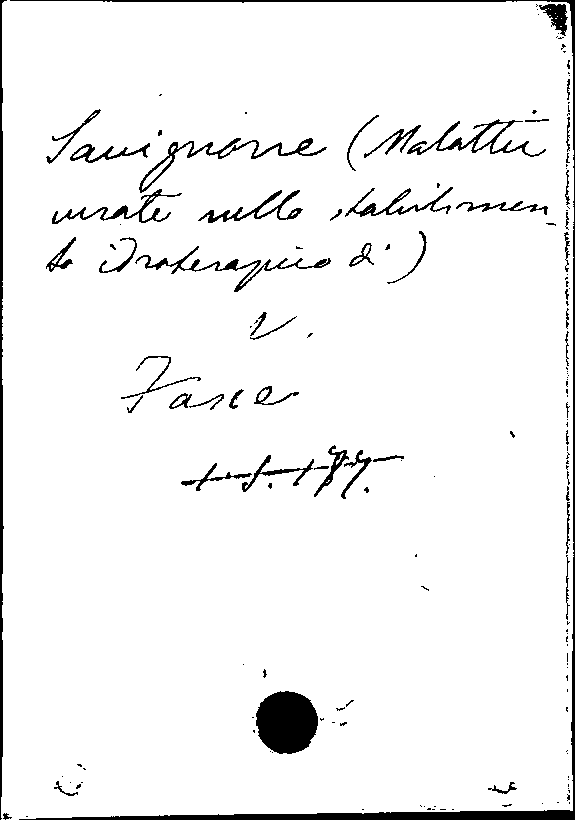 Savignone (Malattie
curate nello stabilimen-
to idroterapico di)
V.
Fasce